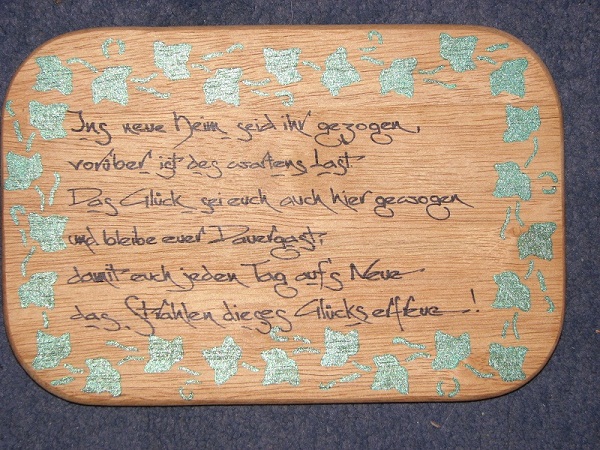 Ins neue Heim seid ihr gezogen,
vorüber ist des wartens Last.
Das Glück sei euch auch hier gewogen
und bleibe euer Dauergast,
damit euch jeden Tag auf's Neue
das Strahlen dieses Glücks erfreue!